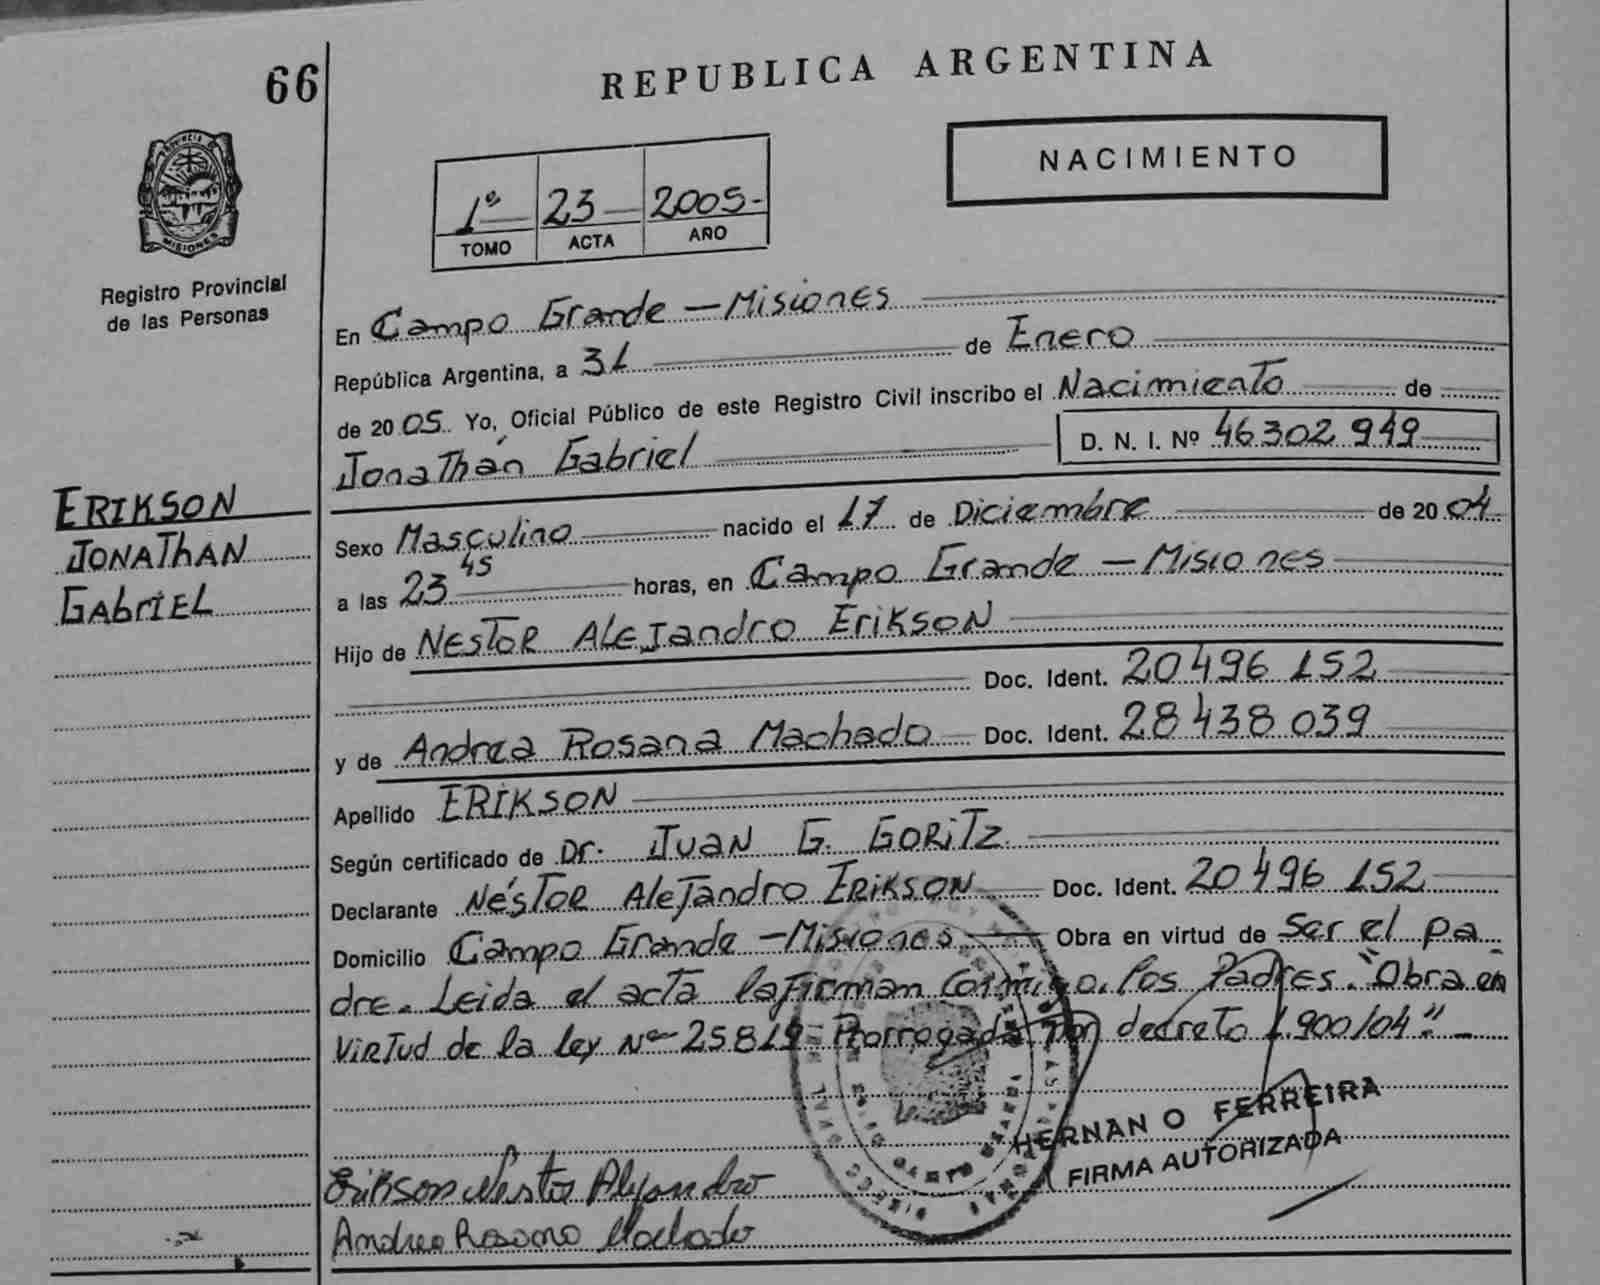 66
REPUBLICA ARGENTINA
NACIMIENTO
1º 23 2005
TOMO ACTA AÑO
PROVINCIA DE
MISIONES
Registro Provincial
de las Personas
En Campo Grande - Misiones
República Argentina, a 31 de Enero
de 2005. Yo, Oficial Público de este Registro Civil inscribo el Nacimiento de
Jonathán Gabriel D. N. I. Nº 46302949
ERIKSON
JONATHAN
GABRIEL
Sexo Masculino nacido el 17 de Diciembre de 2004
a las 23 45 horas, en Campo Grande - Misiones
Hijo de NESTOR ALEJANDRO ERIKSON
Doc. Ident. 20496152
y de Andrea Rosana Machado Doc. Ident. 28438039
Apellido ERIKSON
Según certificado de Dr. JUAN G. GORITZ
Declarante NéSTOR AleJandro ERIKSON Doc. Ident. 20496152
Domicilio Campo Grande - Misiones Obra en virtud de Ser el pa
dre. Leida el acta la Firman Conmigo los Padres. "Obra en
Virtud de la ley Nº 25819 Prorrogada por decreto 1.900/04"
HERNAN O FERREIRA
FIRMA AUTORIZADA
Erikson Nestor Alejandro
Andrea Rosana Machado